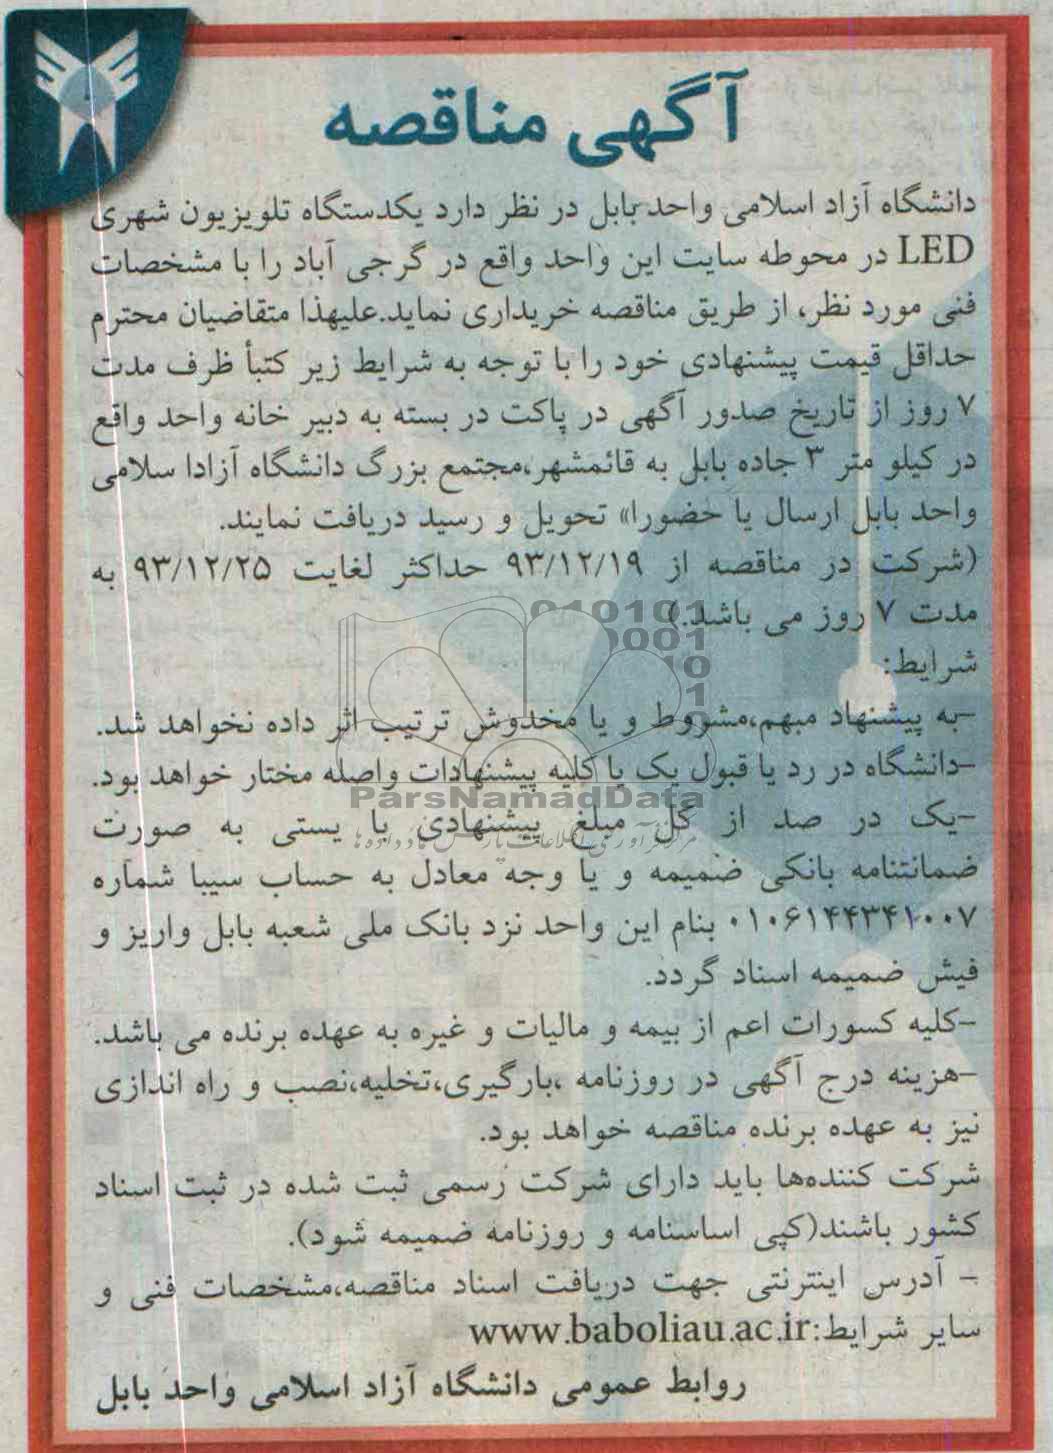 آگهی مناقصه
دانشگاه آزاد اسلامی واحد بابل در نظر دارد یکدستگاه تلویزیون شهری
LED در محوطه سایت این واحد واقع در گرجی آباد را با مشخصات
فنی مورد نظر، از طریق مناقصه خریداری نماید.علیهذا متقاضیان محترم
حداقل قیمت پیشنهادی خود را با توجه به شرایط زیر کتبأ ظرف مدت
۷ روز از تاریخ صدور آگهی در پاکت در بسته به دبیر خانه واحد واقع
در کیلو متر ۳ جاده بابل به قائمشهر،مجتمع بزرگ دانشگاه آزادا سلامی
واحد بابل ارسال یا حضورا» تحویل و رسید دریافت نمایند.
(شرکت در مناقصه از ۹۳/۱۲/۱۹ حداکثر لغایت ۹۳/۱۲/۲۵ به
مدت ۷ روز می باشد.)
شرایط:
-به پیشنهاد مبهم،مشروط و یا مخدوش ترتیب اثر داده نخواهد شد.
-دانشگاه در رد یا قبول یک یا کلیه پیشنهادات واصله مختار خواهد بود.
ParsNamadData
-یک در صد از کل مبلغ پیشنهادی با یستی به صورت
ضمانتنامه بانکی ضمیمه و یا وجه معادل به حساب سیبا شماره
۰۱۰۶۱۴۴۳۴۱۰۰۷ بنام این واحد نزد بانک ملی شعبه بابل واریز و
فیش ضمیمه اسناد گردد.
-کلیه کسورات اعم از بیمه و مالیات و غیره به عهده برنده می باشد.
-هزینه درج آگهی در روزنامه ،بارگیری،تخلیه،نصب و راه اندازی
نیز به عهده برنده مناقصه خواهد بود.
شرکت کننده‌ها باید دارای شرکت رسمی ثبت شده در ثبت اسناد
کشور باشند(کپی اساسنامه و روزنامه ضمیمه شود).
- آدرس اینترنتی جهت دریافت اسناد مناقصه،مشخصات فنی و
سایر شرایط:www.baboliau.ac.ir
روابط عمومی دانشگاه آزاد اسلامی واحد بابل